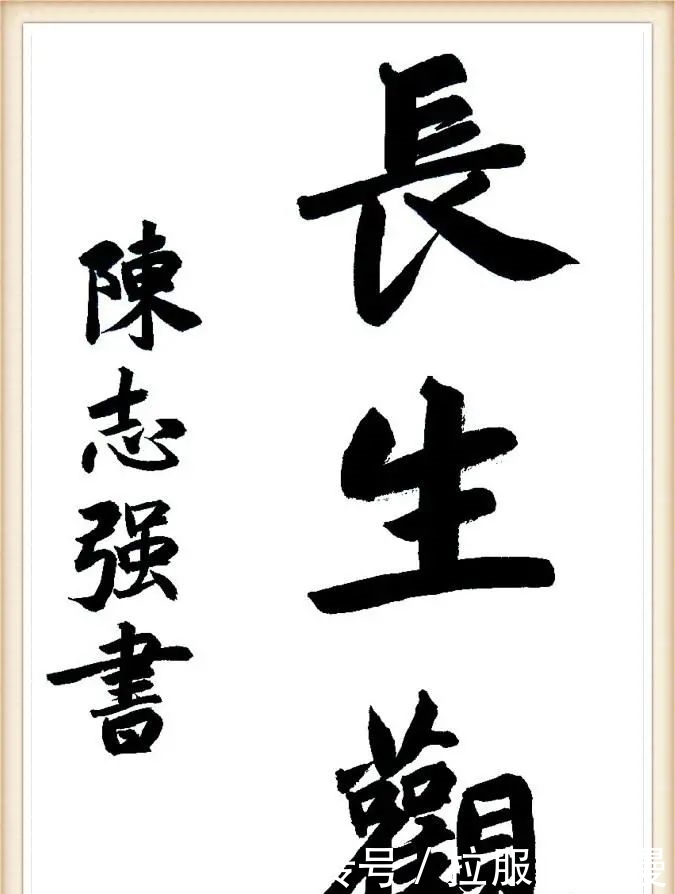 長生觀
陳志强書
号 / 拉服